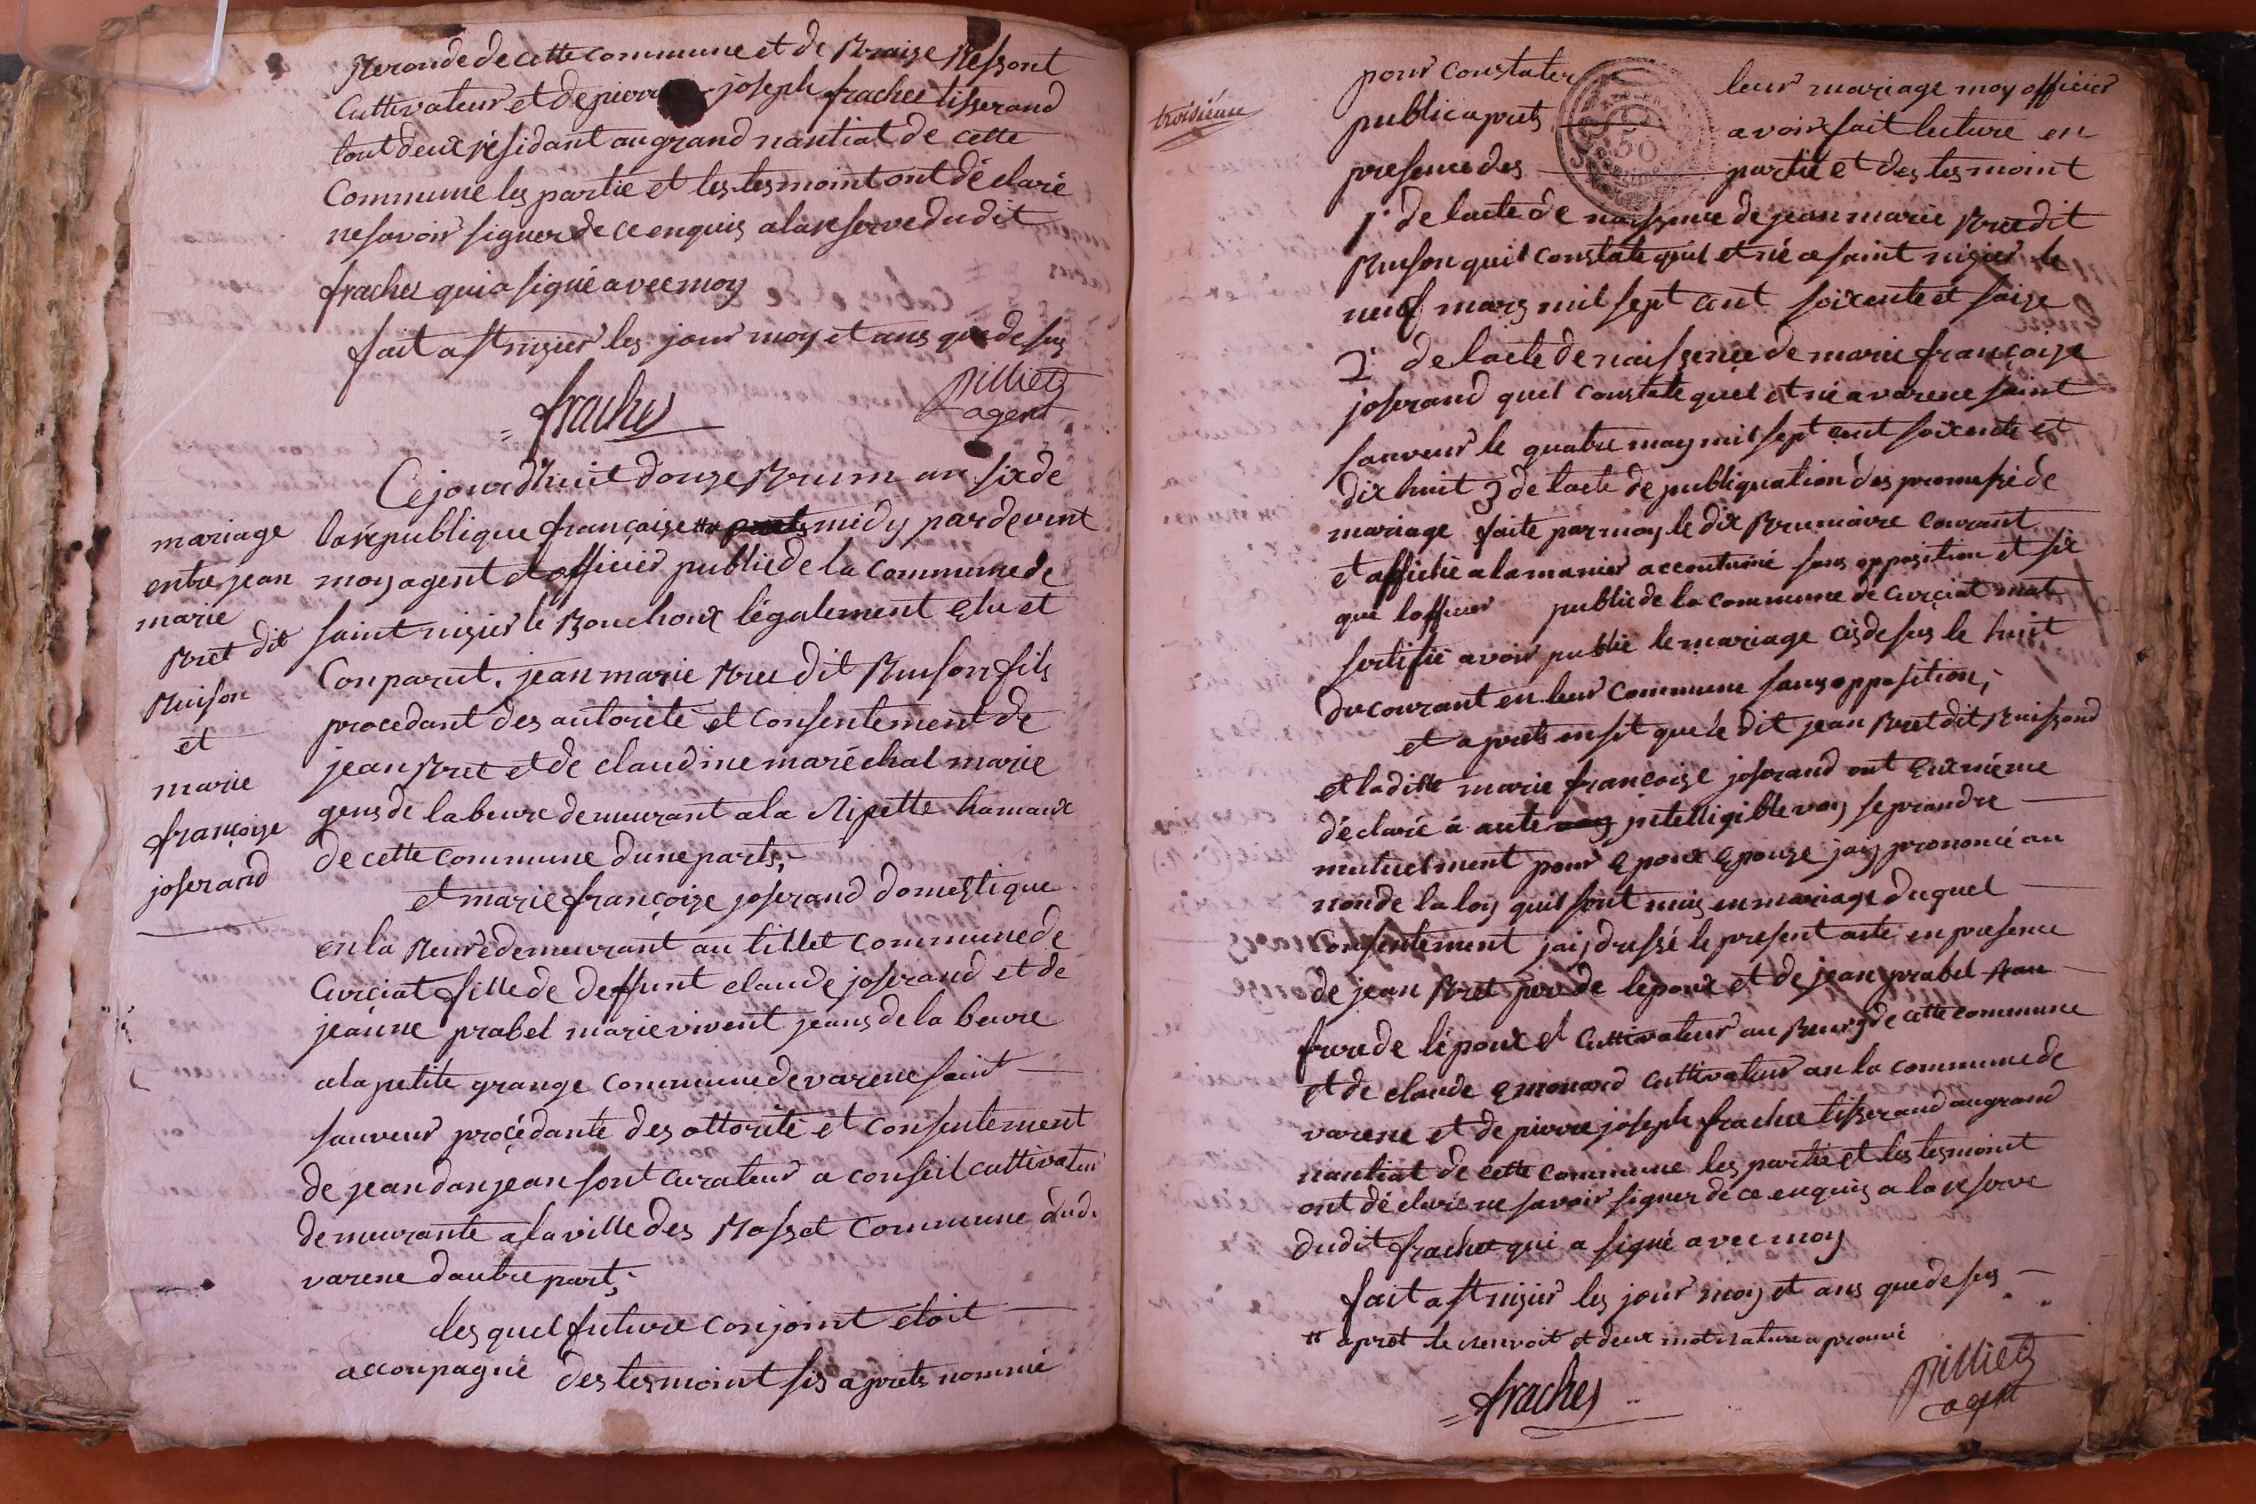 de cette commune et de Braize
Cultivateur et de pierre joseph frachet tisserand
tout deux résidant au grand nantiat de cette
Commune les partie et les tesmoint ont déclaré
ne savoir signer de ce enquis a la reserve du dit
frachet qui a signé avec moy
fait a st nisier les jour moy et ans que desus
frachet
pilliet
agent
Ce jourdhuit douze Brum an six de
la république françaize # midy par devent
moy agent et officier public de la commune de
saint nisier le Bouchoux légalement elu et
Conparut. jean marie Bret dit Buison fils
procedant des autorité et consentement de
jean Bret et de claudine maréchal marie
gens de labeure demeurant a la Ripette hamaux
de cette commune dune parts;
mariage
entre jean
marie
Bret dit
Buison
et
marie
françoize
joserand
et marie françoize joserand domestique
en la demeurant au tillet commune de
Curciat fille de deffunt claude joserand et de
jeanne prabel marie vivent jeans de la beure
a la petite grange commune de varene saint
sauveur procédante des attorité et consentement
de jean danjean sont curateur a conseil cultivateur
demeurante a la ville des Bosset commune dud.
varene dautre part;
les quel future conjoint étoit
acconpagné des tesmoint sis aprets nommé
troisiéme
pour constater leur mariage moy officier
public aprets avoir fait lecture en
presence des partie et des tesmoint
1° de lacte de naissence de jean marie Bret dit
Buison quil constate quil et né a saint nisier le
neuf mars mil sept cent soixente et saize
2° de lacte de naissence de marie françoize
joserand quel constate quel et né a varene saint
sauveur le quatre may mil sept cent soixente et
dix huit 3 de lacte de publiquation des promesse de
mariage faite par moy le dix Brumaire courant
et affiché a la manier accoutumé sans opposition et six
que lofficier public de la commune de Curciat mat
sertifié avoir publié le mariage cis desus le huit
du courant en leur commune sans opposition;
et aprets ensit que le dit jean Bret dit Buissond
et la ditte marie françoize joserand ont eux méme
déclaré á aute intelligible voy se prandre
mutuelment pour epoux epouze jay prononcé au
non de la loy quil sont unis en mariage duquel
Consentement jaij dressé le present acte en presence
de jean Bret pere de lepoux et de jean prabel
frere de lépoux et Cultivateur au Bourg de cette commune
et de claude emonard cultivateur an la commune de
varene et de pierre joseph frachet tisserand au grand
nantiat de cette commune les partie et les tesmoint
ont déclaré ne savoir signer de ce enquis a la reserve
dudit frachet qui a signé avec moy
fait a st nisier les jour moy et ans que desus
# apret le renvoit et deux mot rature aprouvé
frachet
pilliet
agent